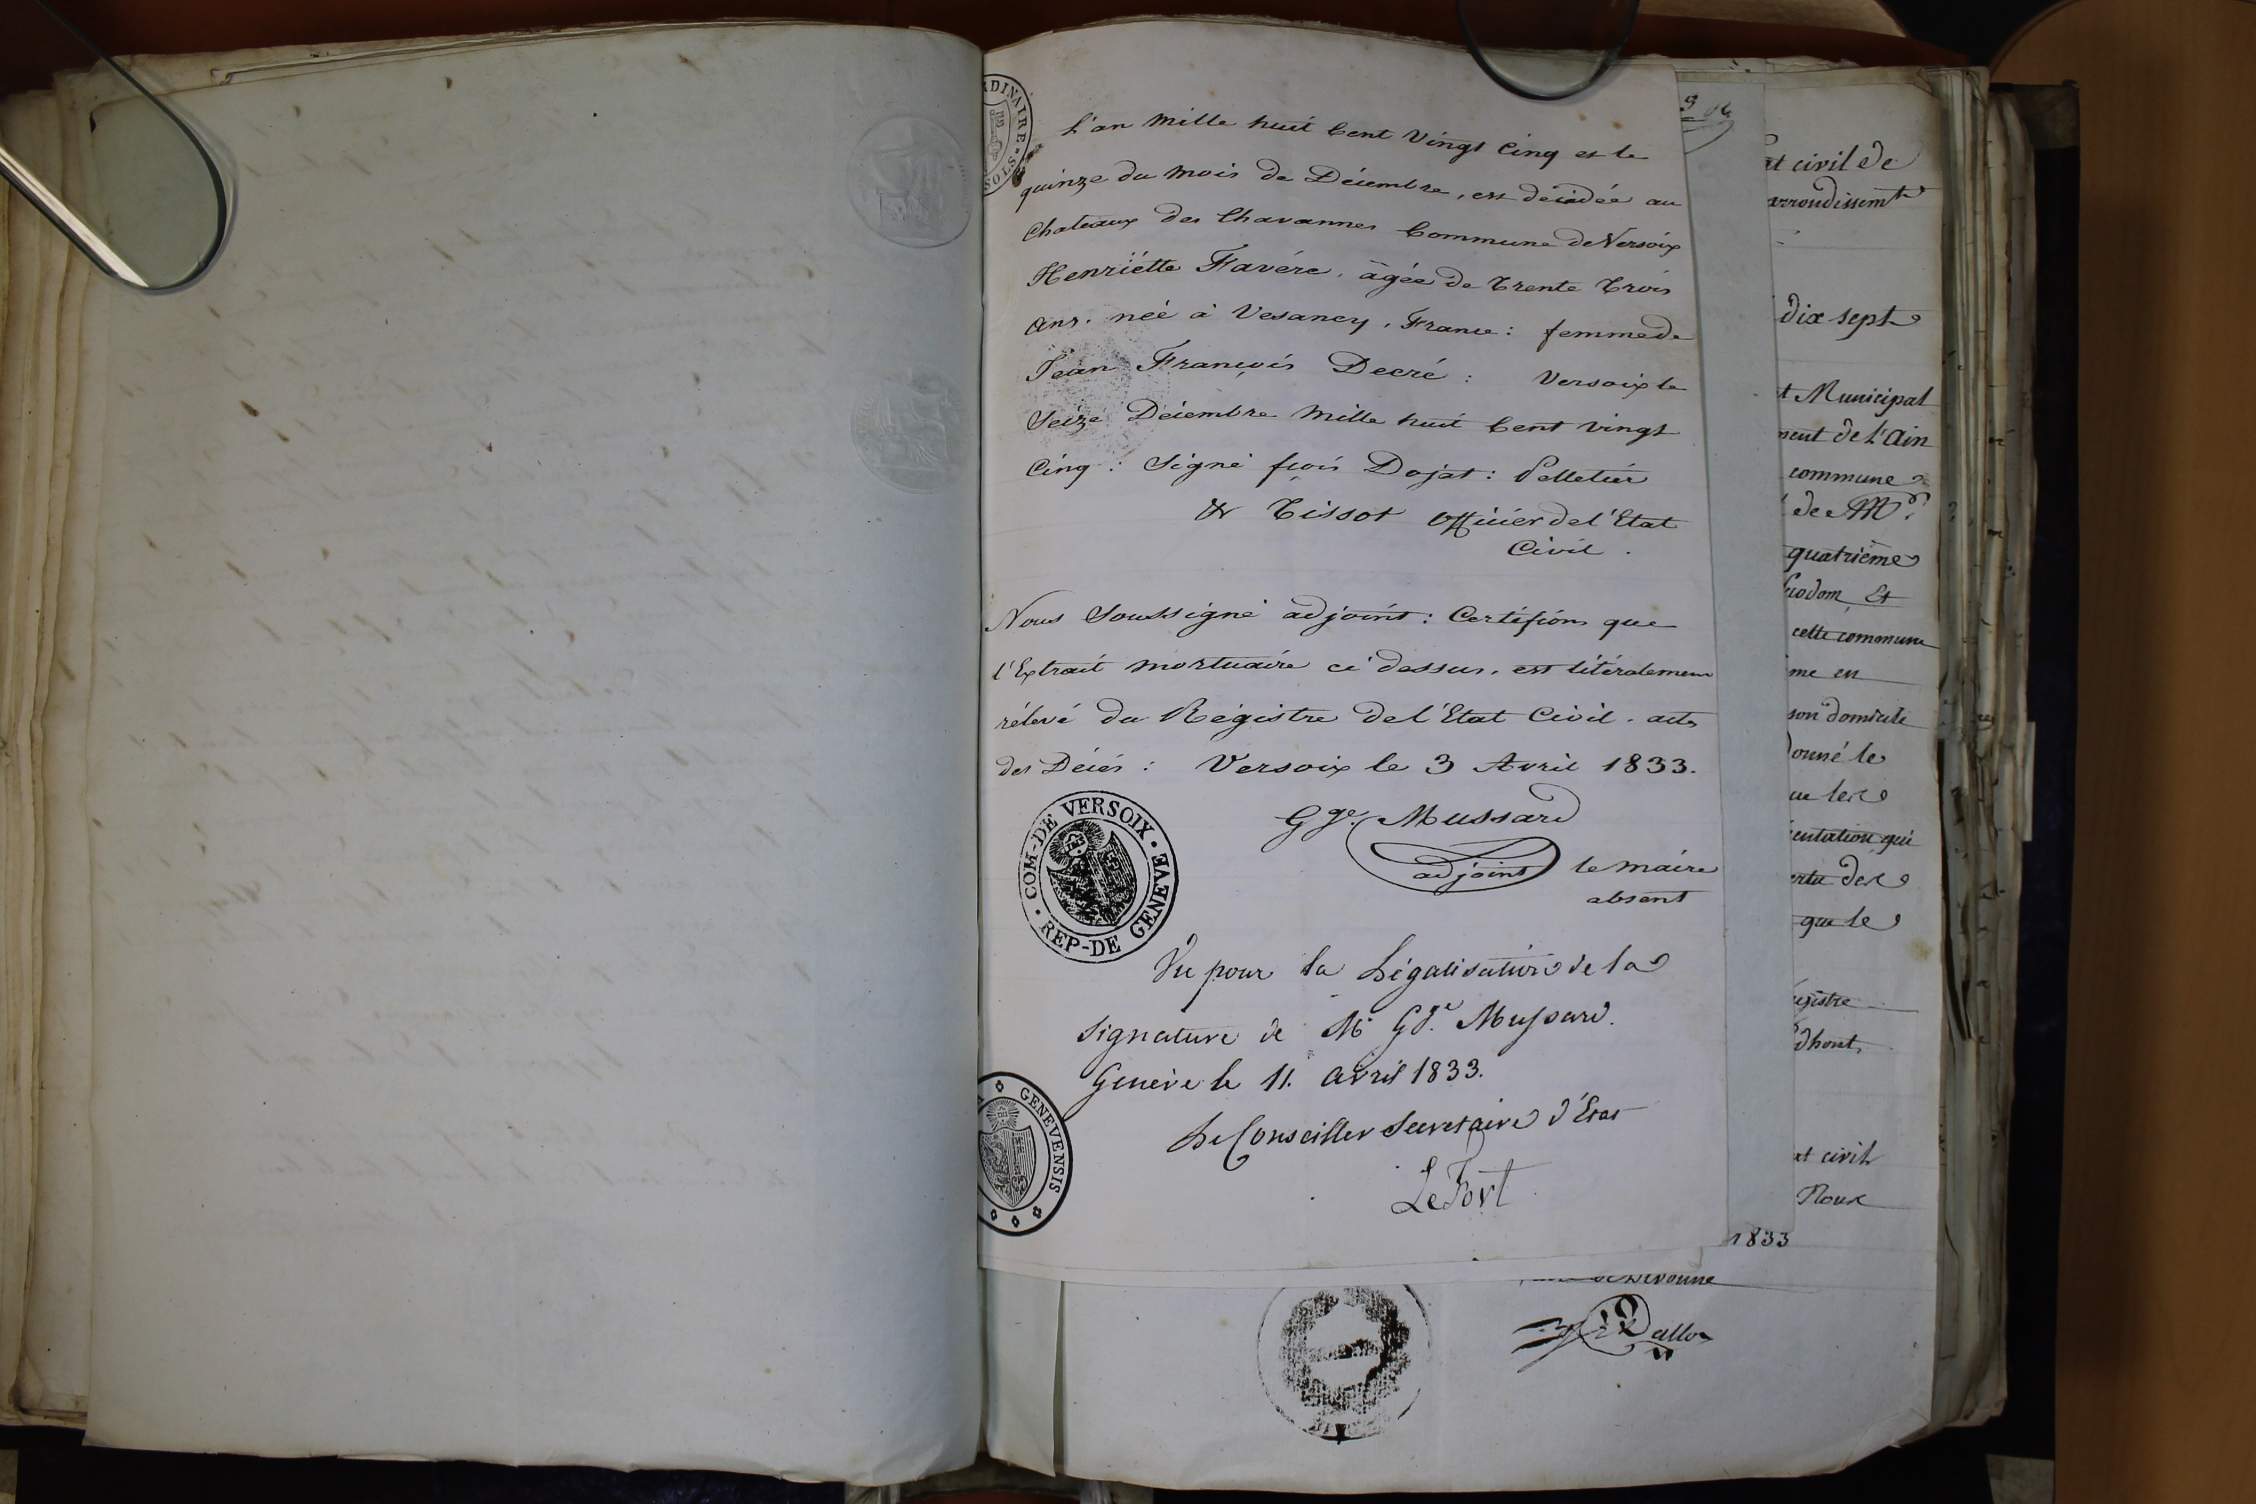 L'an mille huit Cent Vingt Cinq et le
quinze du mois de Décembre, est décédée au
Chateaux des Chavannes Commune de Versoix
Henriëtte Favére, âgée de Trente Trois
ans. née à Vesancy, France: femme de
Jean François Decré: Versoix le
Seize Décembre mille huit Cent vingt
Cinq: Signé fçois Dojat: Pelletier
& Tissot officier de l'Etat
Civil.
Nous Soussigné adjoint: Certifions que
l'Extrait mortuaire ci dessus, est litéralement
rélevé du Régistre de l'Etat Civil. actes
des Décés: Versoix le 3 Avril 1833.
Gge. Mussard
adjoint le maire
absent
COM-DE VERSOIX • REP-DE GENEVE •
Vu pour la Légalisation de la
signature de Mr Gge. Mussard.
Genève le 11. avril 1833.
Le Conseiller Secretaire d'Etat
LeFort
GENEVENSIS
DINAIRE
SOLS
at civil de
arrondissemt
dix sept
t Municipal
ment de l'ain
commune
de Mr.
quatrième
Et
cette commune
me en
son domicile
onné le
entation qui
que le
gistre
dhont,
at civil
Roux
1833